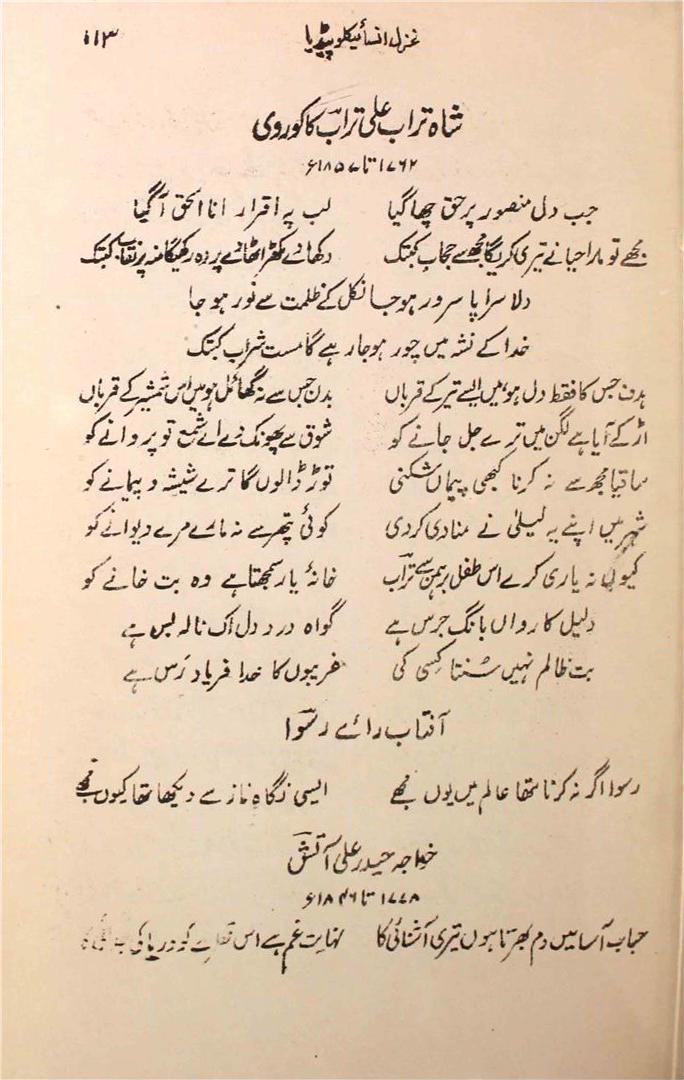 غزل انسائیکلوپیڈیا ۱۱۳
شاہ تراب علی تراب کاکوروی
۱۷۶۲ تا ۱۸۵۷ء
جب دل منصور پر حق چھا گیا لب پہ اقرار انا الحق آ گیا
مجھے تو مارا حیا نے تیری کریگا مجھ سے حجاب کبتک دکھا دے مکھڑا اٹھا دے پردہ رکھیگا منہ پر نقاب کبتک
دلا سراپا سرور ہو جا نکل کے ظلمت سے نور ہو جا
خدا کے نشہ میں چور ہو جا رہے گا مست شراب کبتک
ہدف جس کا فقط دل ہو میں ایسے تیر کے قرباں بدن جس سے نہ گھائل ہو میں اس شمشیر کے قرباں
اڑ کے آیا ہے لگن میں ترے جل جانے کو شوق سے پھونک دے اے شمع تو پروانے کو
ساقیا مجھ سے نہ کرنا کبھی پیماں شکنی توڑ ڈالوں گا ترے شیشہ و پیمانے کو
شہر میں اپنے یہ لیلیٰ نے منادی کر دی کوئی پتھر سے نہ مارے مرے دیوانے کو
کیوں نہ یاری کرے اس طفل برہمن سے تراب خانۂ یار سمجھتا ہے وہ بت خانے کو
دلیل کارواں بانگ جرس ہے گواہ درد دل اک نالہ بس ہے
بت ظالم نہیں سنتا کسی کی غریبوں کا خدا فریاد رس ہے
آفتاب رائے رسوا
رسوا اگر نہ کرنا تھا عالم میں یوں مجھے ایسی نگاہ ناز سے دیکھا تھا کیوں مجھے
خواجہ حیدر علی آتش
۱۷۷۸ تا ۱۸۴۶ء
حباب آسا میں دم بھرتا ہوں تیری آشنائی کا نہایت غم ہے اس قطرے کو دریا کی